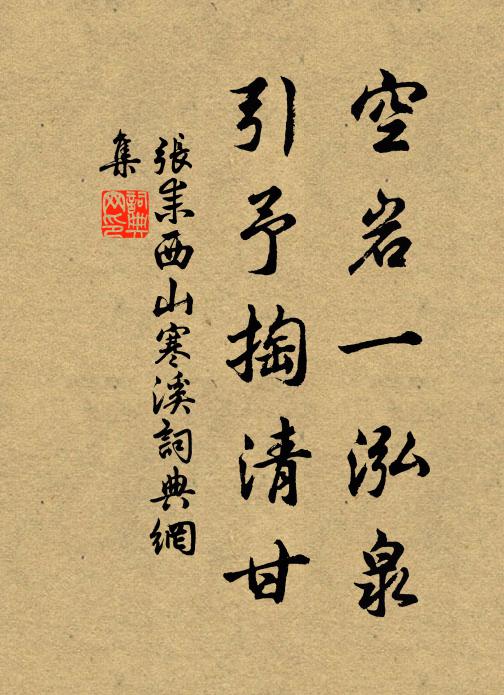 空岩一泓泉
引予掏清甘
張耒西山寒溪詞典網
集
詞典
网印